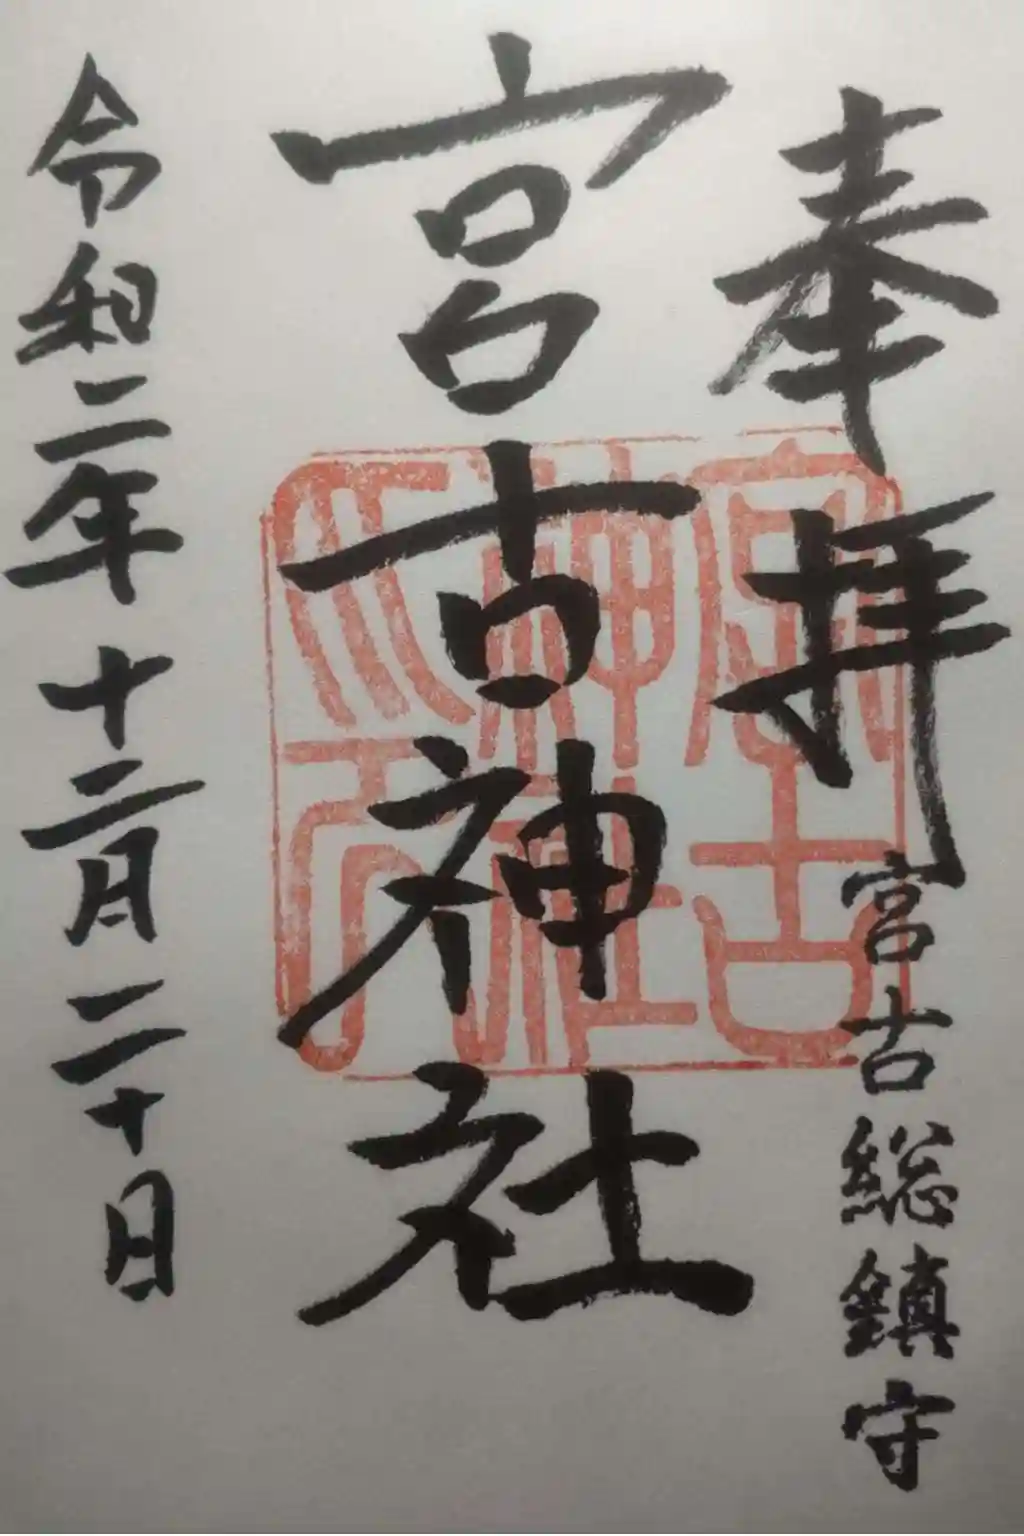 奉拝
宮古総鎮守
宮古神社
宮古
神社
之
令和二年十二月二十日